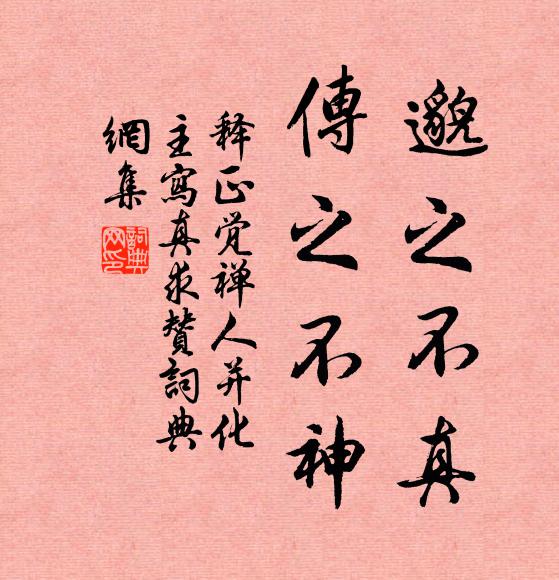 邈之不真
傳之不神
释正觉禅人并化
主寫真求賛詞典
網集
詞典網印